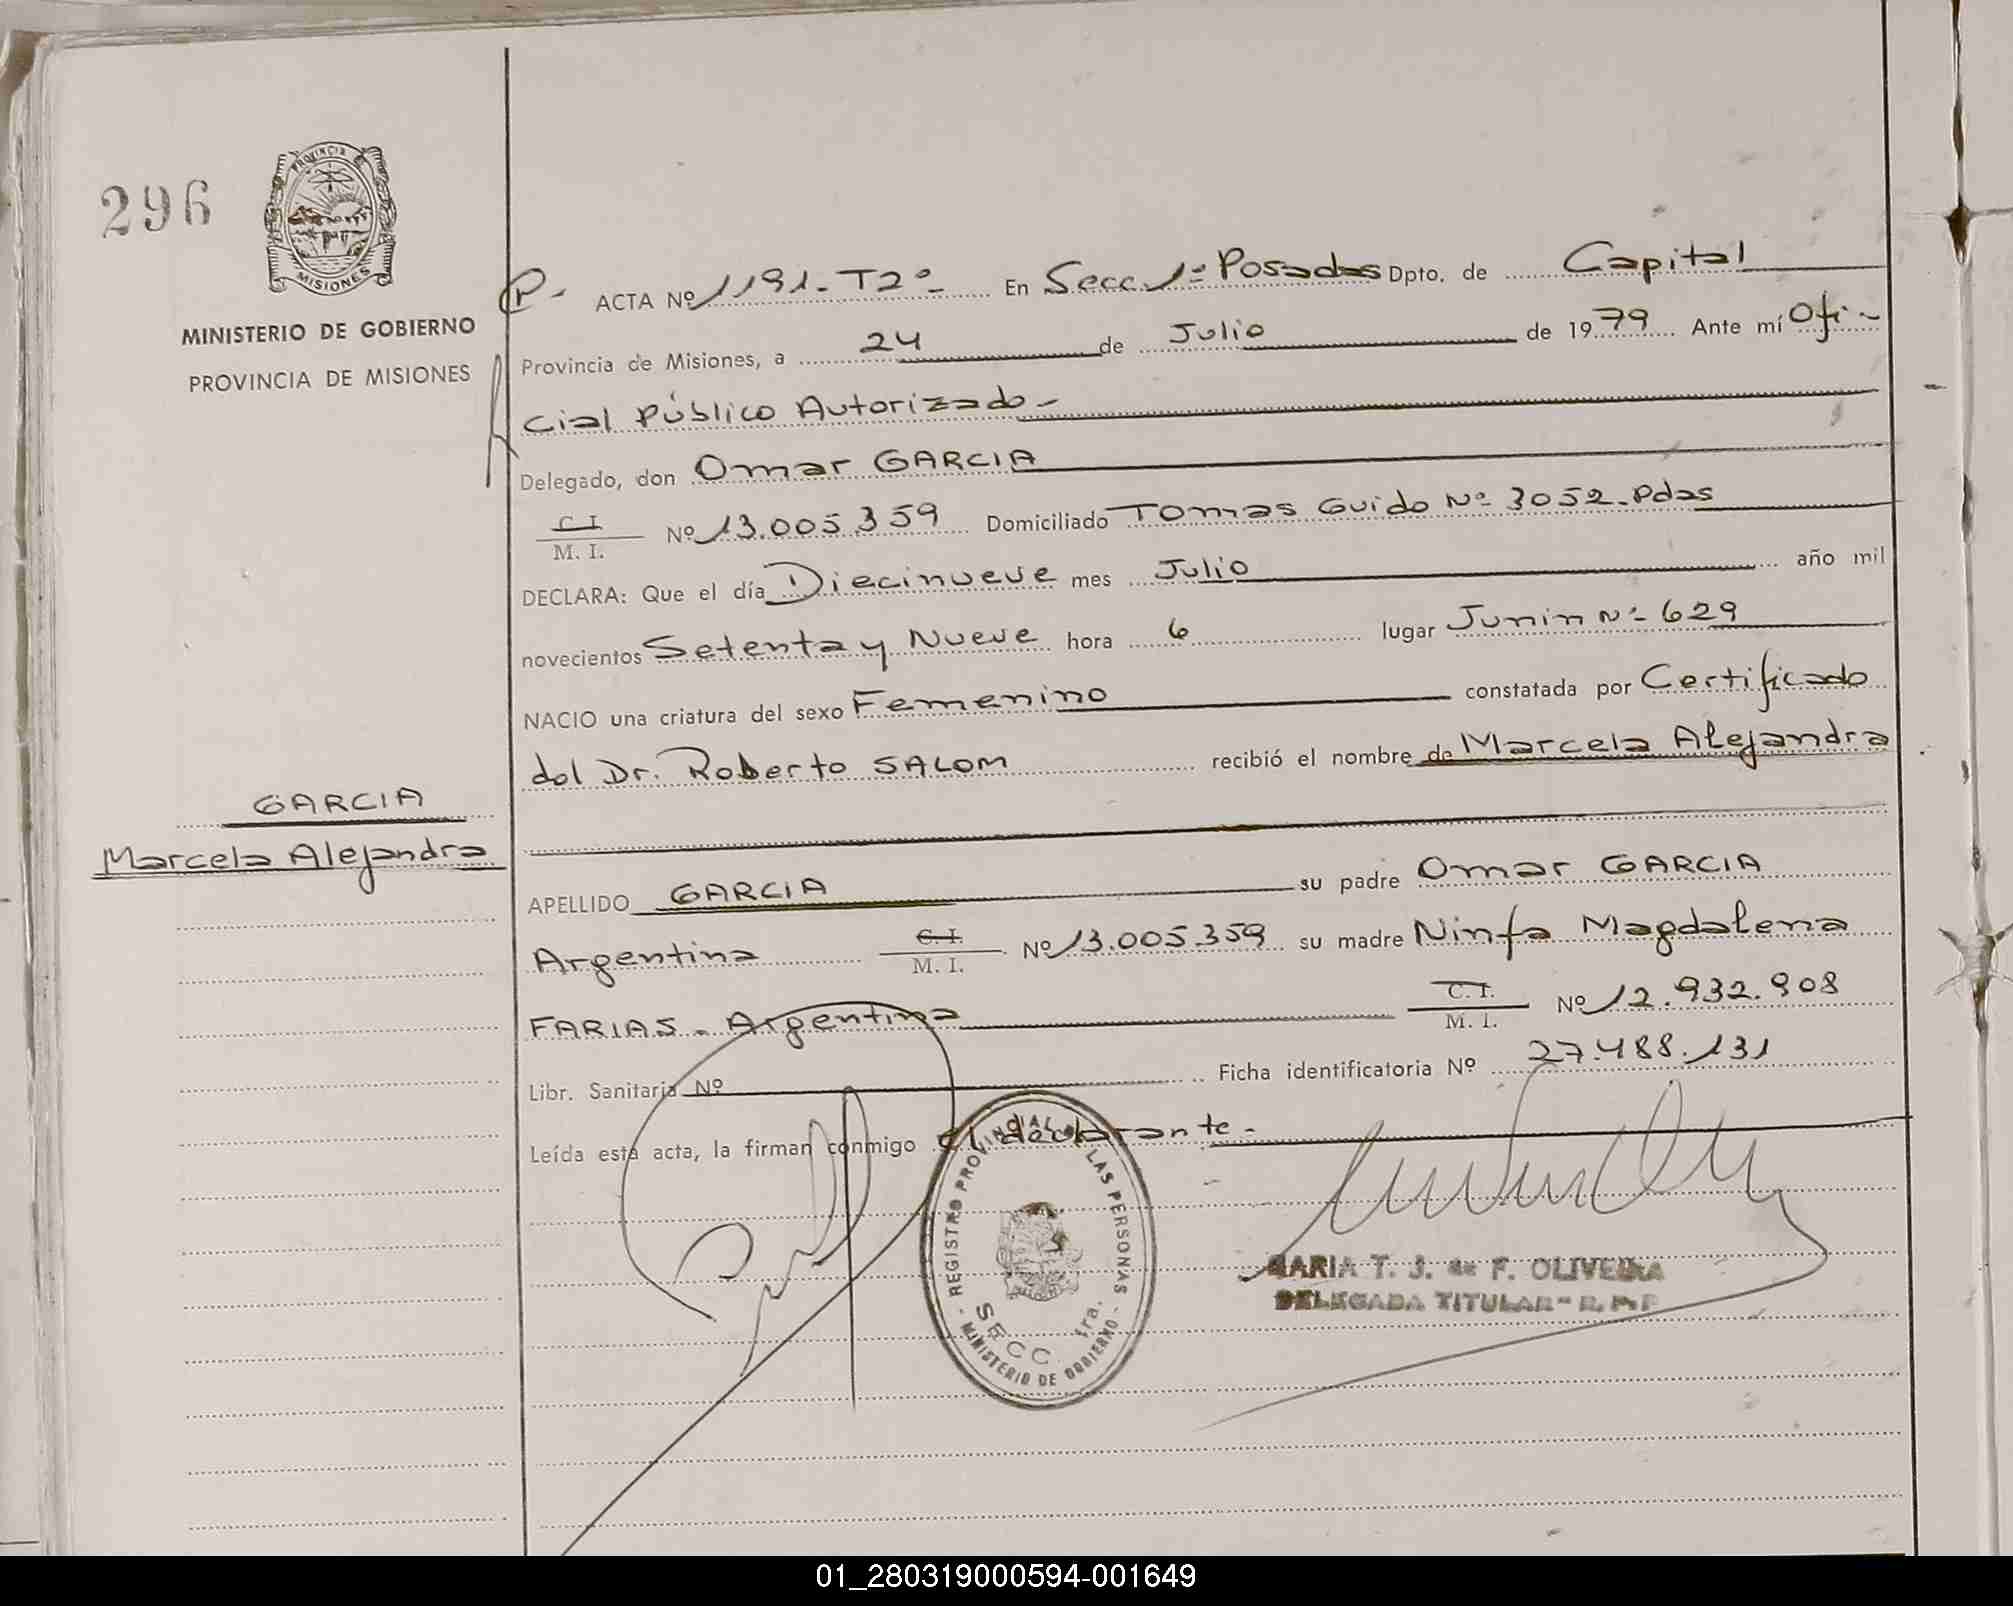 296
PROVINCIA
MISIONES
MINISTERIO DE GOBIERNO
PROVINCIA DE MISIONES
P- ACTA Nº 1191-T2º En Secc 1ª Posadas Dpto. de Capital
Provincia de Misiones, a 24 de Julio de 1979 Ante mí Ofi-
cial Público Autorizado-
Delegado, don Omar GARCIA
C I
M. I.
Nº 13.005.359 Domiciliado Tomas Guido Nº 3052.Pdas
DECLARA: Que el día Diecinueve mes Julio año mil
novecientos Setenta y Nueve hora 6 lugar Junin Nº 629
NACIO una criatura del sexo Femenino constatada por Certificado
del Dr. Roberto SALOM recibió el nombre de Marcela Alejandra
GARCIA
Marcela Alejandra
APELLIDO GARCIA su padre Omar GARCIA
Argentina C.I. M. I. Nº 13.005.359 su madre Ninfa Magdalena
FARIAS. Argentina C.I. M. I. Nº 12.932.908
Libr. Sanitaria Nº Ficha identificatoria Nº 27.488.131
Leída esta acta, la firman conmigo el declarante-
REGISTRO PROVINCIAL LAS PERSONAS
SECC 1ra.
MINISTERIO DE GOBIERNO
MARIA T. J. de F. OLIVEIRA
DELEGADA TITULAR- R.P.P
01_280319000594-001649